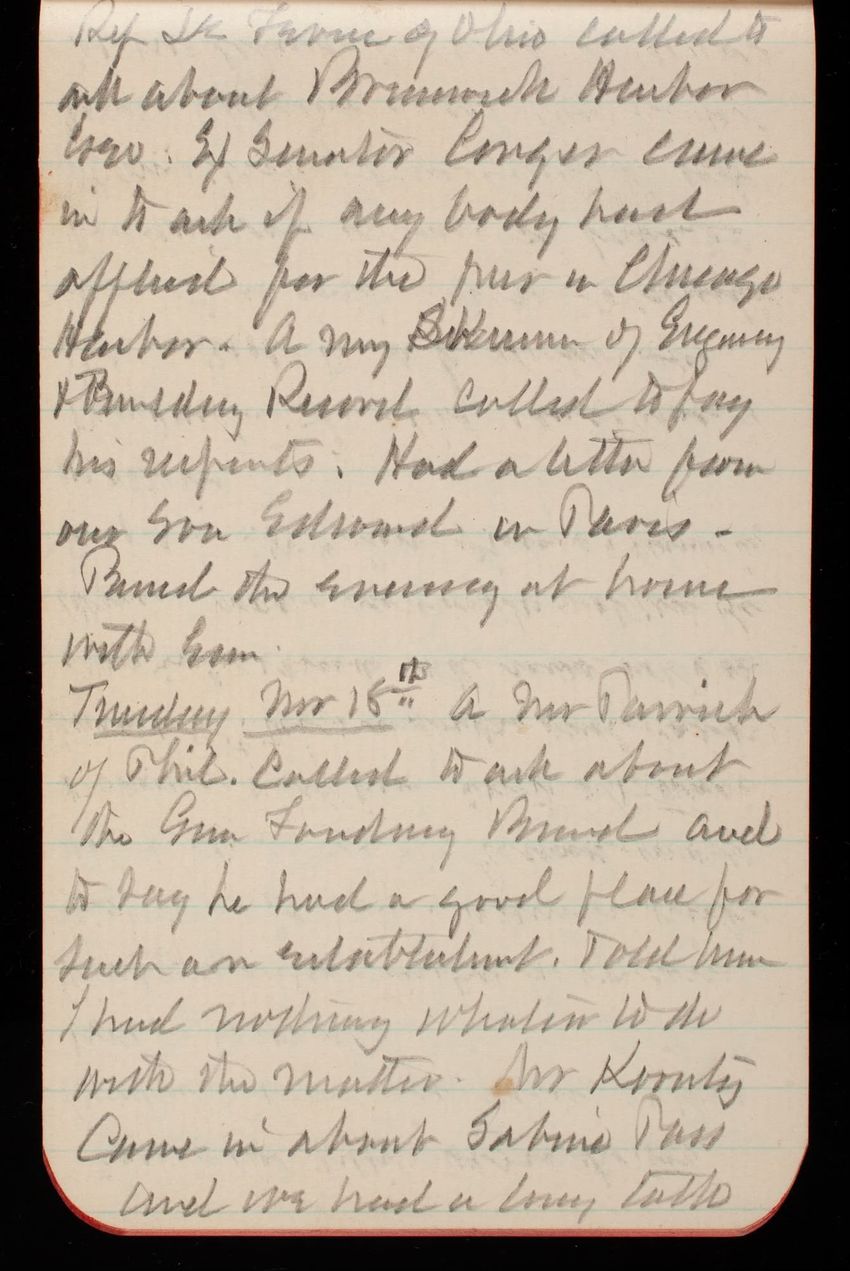 Rep of Ohio called to
ask about Brunswick Harbor
Ex Senator Conger came
in to ask if any body had
applied for the pier in Chicago
Harbor. A Mr of
& Building Record called to pay
his respects. Had a letter from
our Son Edward in Paris -
Passed the evening at home
with Gom
Tuesday Nov 18th A Mr Parrish
of Phil. Called to ask about
the Gun Foundry Board and
to say he had a good place for
such an establishment. Told him
I had nothing whatever to do
with the matter. Mr
Came in about Sabine Pass
and we had a long talk